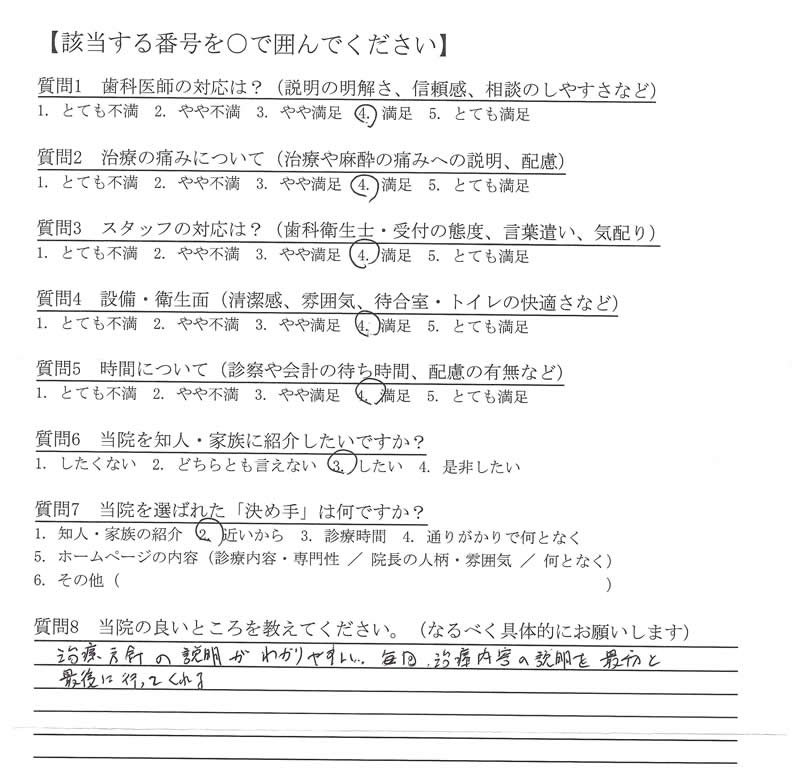 【該当する番号を○で囲んでください】
質問1 歯科医師の対応は？（説明の明解さ、信頼感、相談のしやすさなど）
1. とても不満 2. やや不満 3. やや満足 4. 満足 5. とても満足
質問2 治療の痛みについて（治療や麻酔の痛みへの説明、配慮）
1. とても不満 2. やや不満 3. やや満足 4. 満足 5. とても満足
質問3 スタッフの対応は？（歯科衛生士・受付の態度、言葉遣い、気配り）
1. とても不満 2. やや不満 3. やや満足 4. 満足 5. とても満足
質問4 設備・衛生面（清潔感、雰囲気、待合室・トイレの快適さなど）
1. とても不満 2. やや不満 3. やや満足 4. 満足 5. とても満足
質問5 時間について（診察や会計の待ち時間、配慮の有無など）
1. とても不満 2. やや不満 3. やや満足 4. 満足 5. とても満足
質問6 当院を知人・家族に紹介したいですか？
1. したくない 2. どちらとも言えない 3. したい 4. 是非したい
質問7 当院を選ばれた「決め手」は何ですか？
1. 知人・家族の紹介 2. 近いから 3. 診療時間 4. 通りがかりで何となく
5. ホームページの内容（診療内容・専門性 ／ 院長の人柄・雰囲気 ／ 何となく）
6. その他（ ）
質問8 当院の良いところを教えてください。（なるべく具体的にお願いします）
治療方針の説明がわかりやすい。毎回、治療内容の説明を最初と
最後に行ってくれる